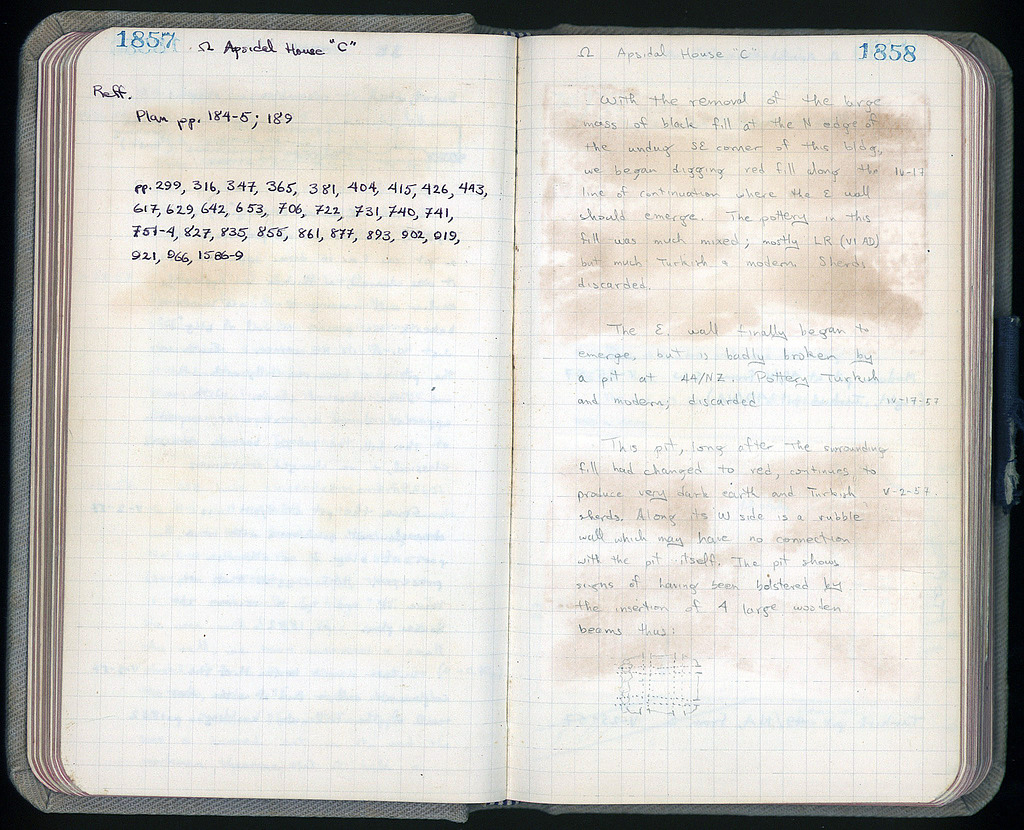 1857
Ω Apsidal House "C"
Reff.
Plan pp. 184-5; 189
pp. 299, 316, 347, 365, 381, 404, 415, 426, 443,
617, 629, 642, 653, 706, 722, 731, 740, 741,
751-4, 827, 835, 855, 861, 877, 893, 902, 919,
921, 966, 1586-9
1858
Ω Apsidal House "C"
With the removal of the large
mass of black fill at the N edge of
the undug SE corner of this bldg,
we began digging red fill along the IV-17
line of continuation where the E wall
should emerge. The pottery in this
fill was much mixed; mostly LR (VI AD)
but much Turkish & modern. Sherds
discarded.
The E. wall finally began to
emerge, but is badly broken by
a pit at 44/NZ. Pottery Turkish
and modern; discarded IV-17-57
This pit, long after the surrounding
fill had changed to red, continues to
produce very dark earth and Turkish V-2-57.
sherds. Along its W side is a rubble
wall which may have no connection
with the pit itself. The pit shows
signs of having been bolstered by
the insertion of 4 large wooden
beams thus: